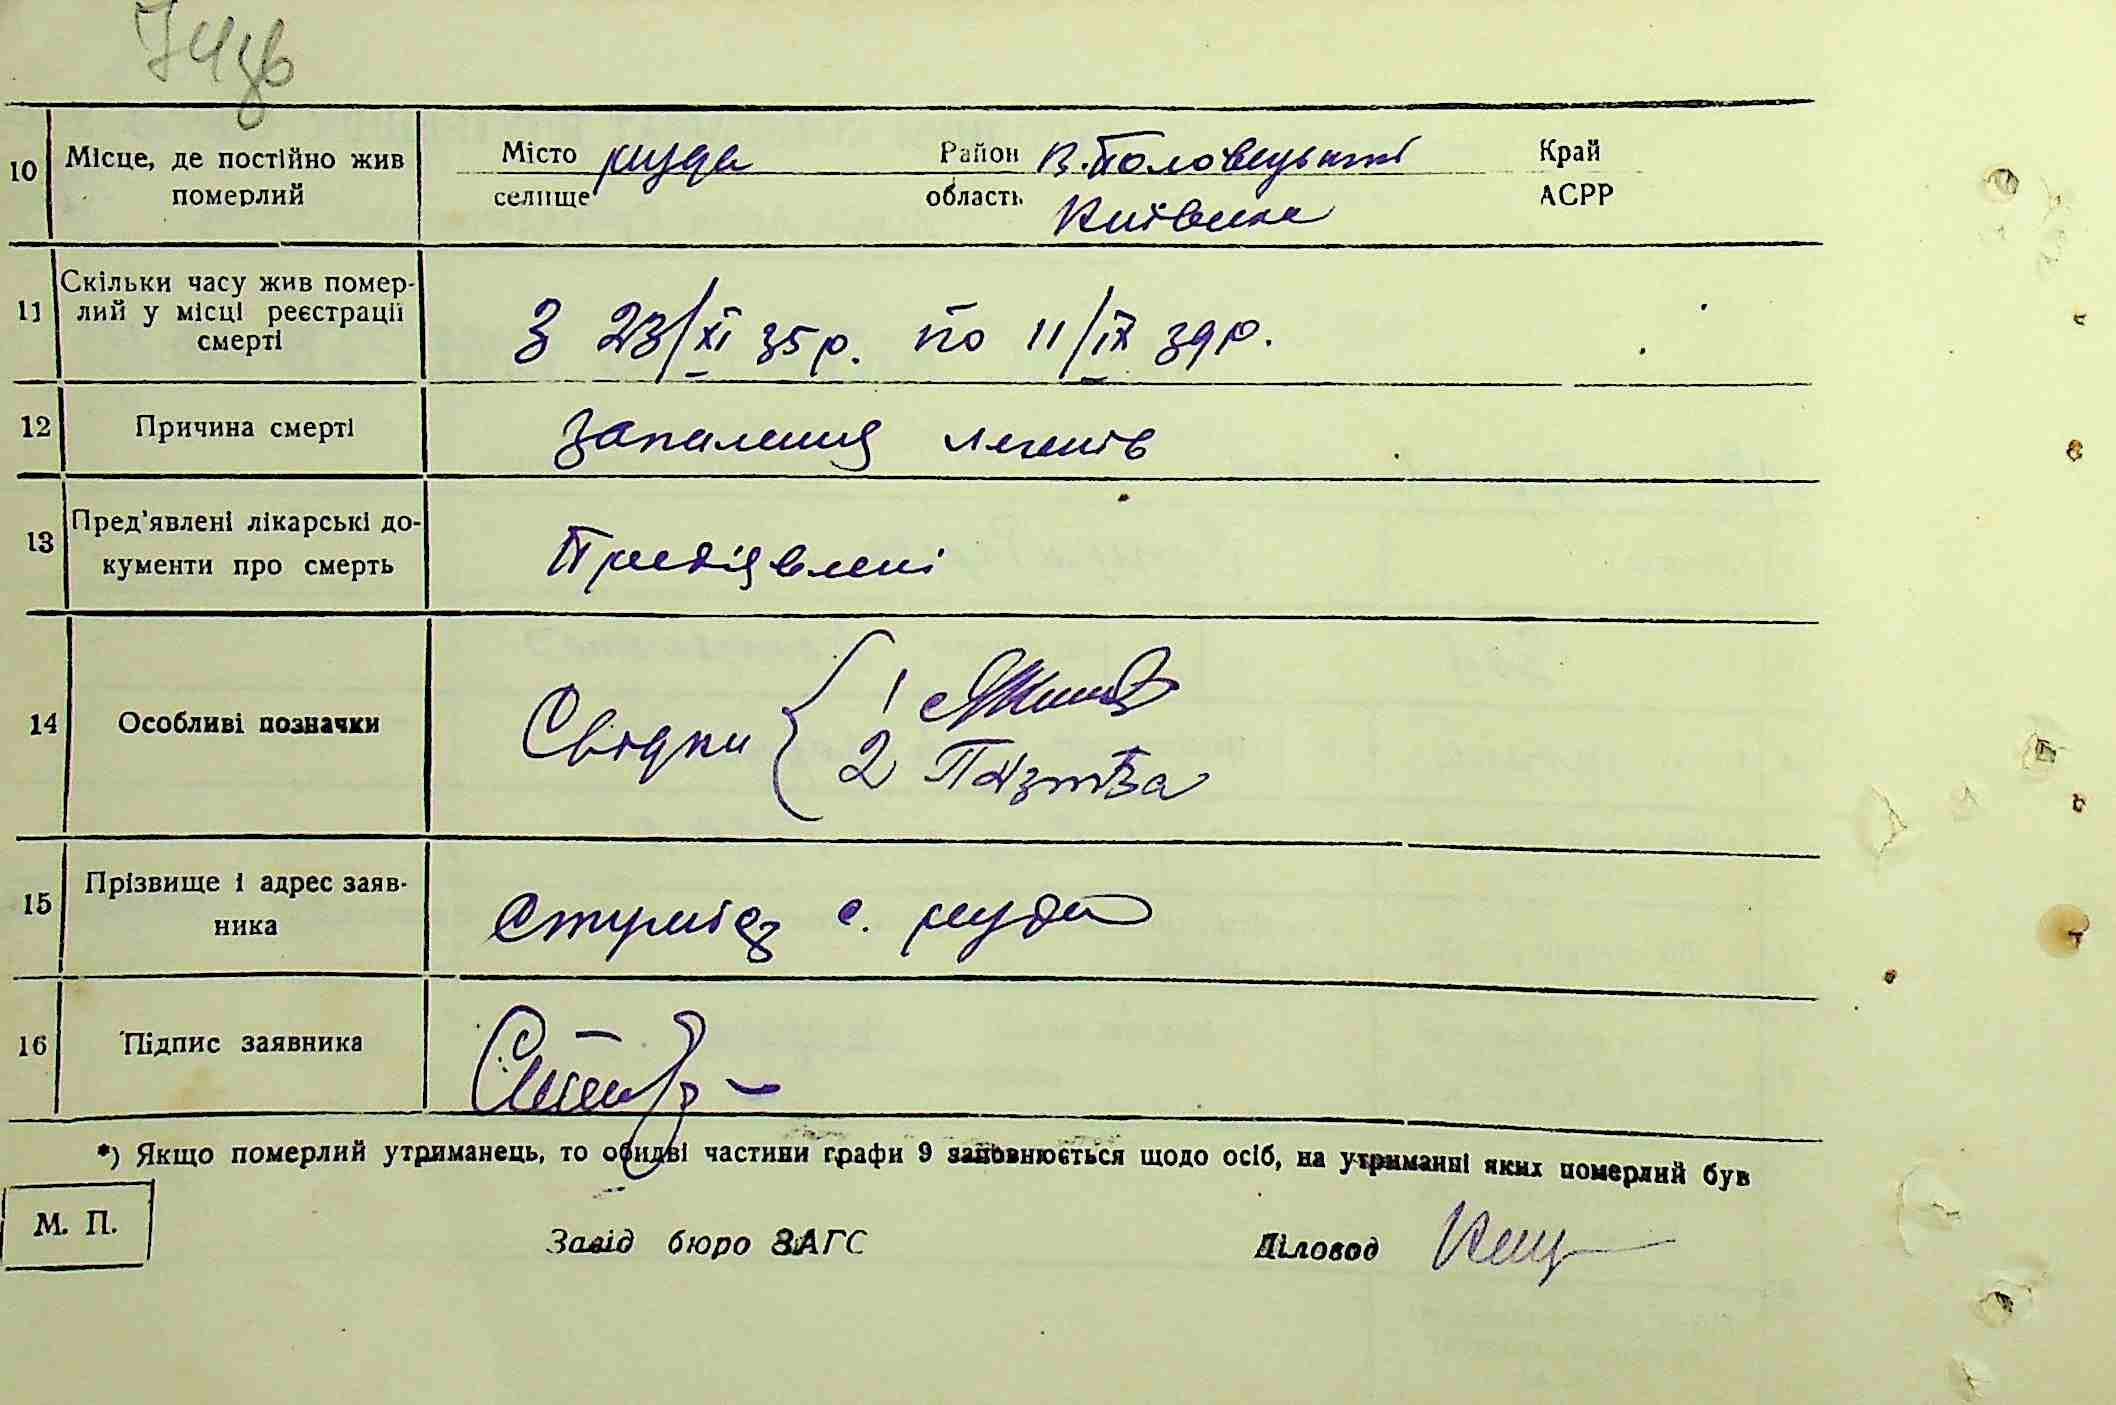 74зв
10 Місце, де постійно жив померлий Місто селище руда Район область В. Половецький Київська Край АСРР
11 Скільки часу жив померлий у місці реєстрації смерті З 23/XI 35 р. по 11/IX 39 р.
12 Причина смерті Запалення легенів
13 Пред'явлені лікарські документи про смерть Предіявлені
14 Особливі позначки Свідки { 1
2
15 Прізвище і адрес заявника с. руда
16 Підпис заявника
*) Якщо померлий утриманець, то обидві частини графи 9 заповнюється щодо осіб, на утриманні яких померлий був
М. П. Завід бюро ЗАГС Діловод